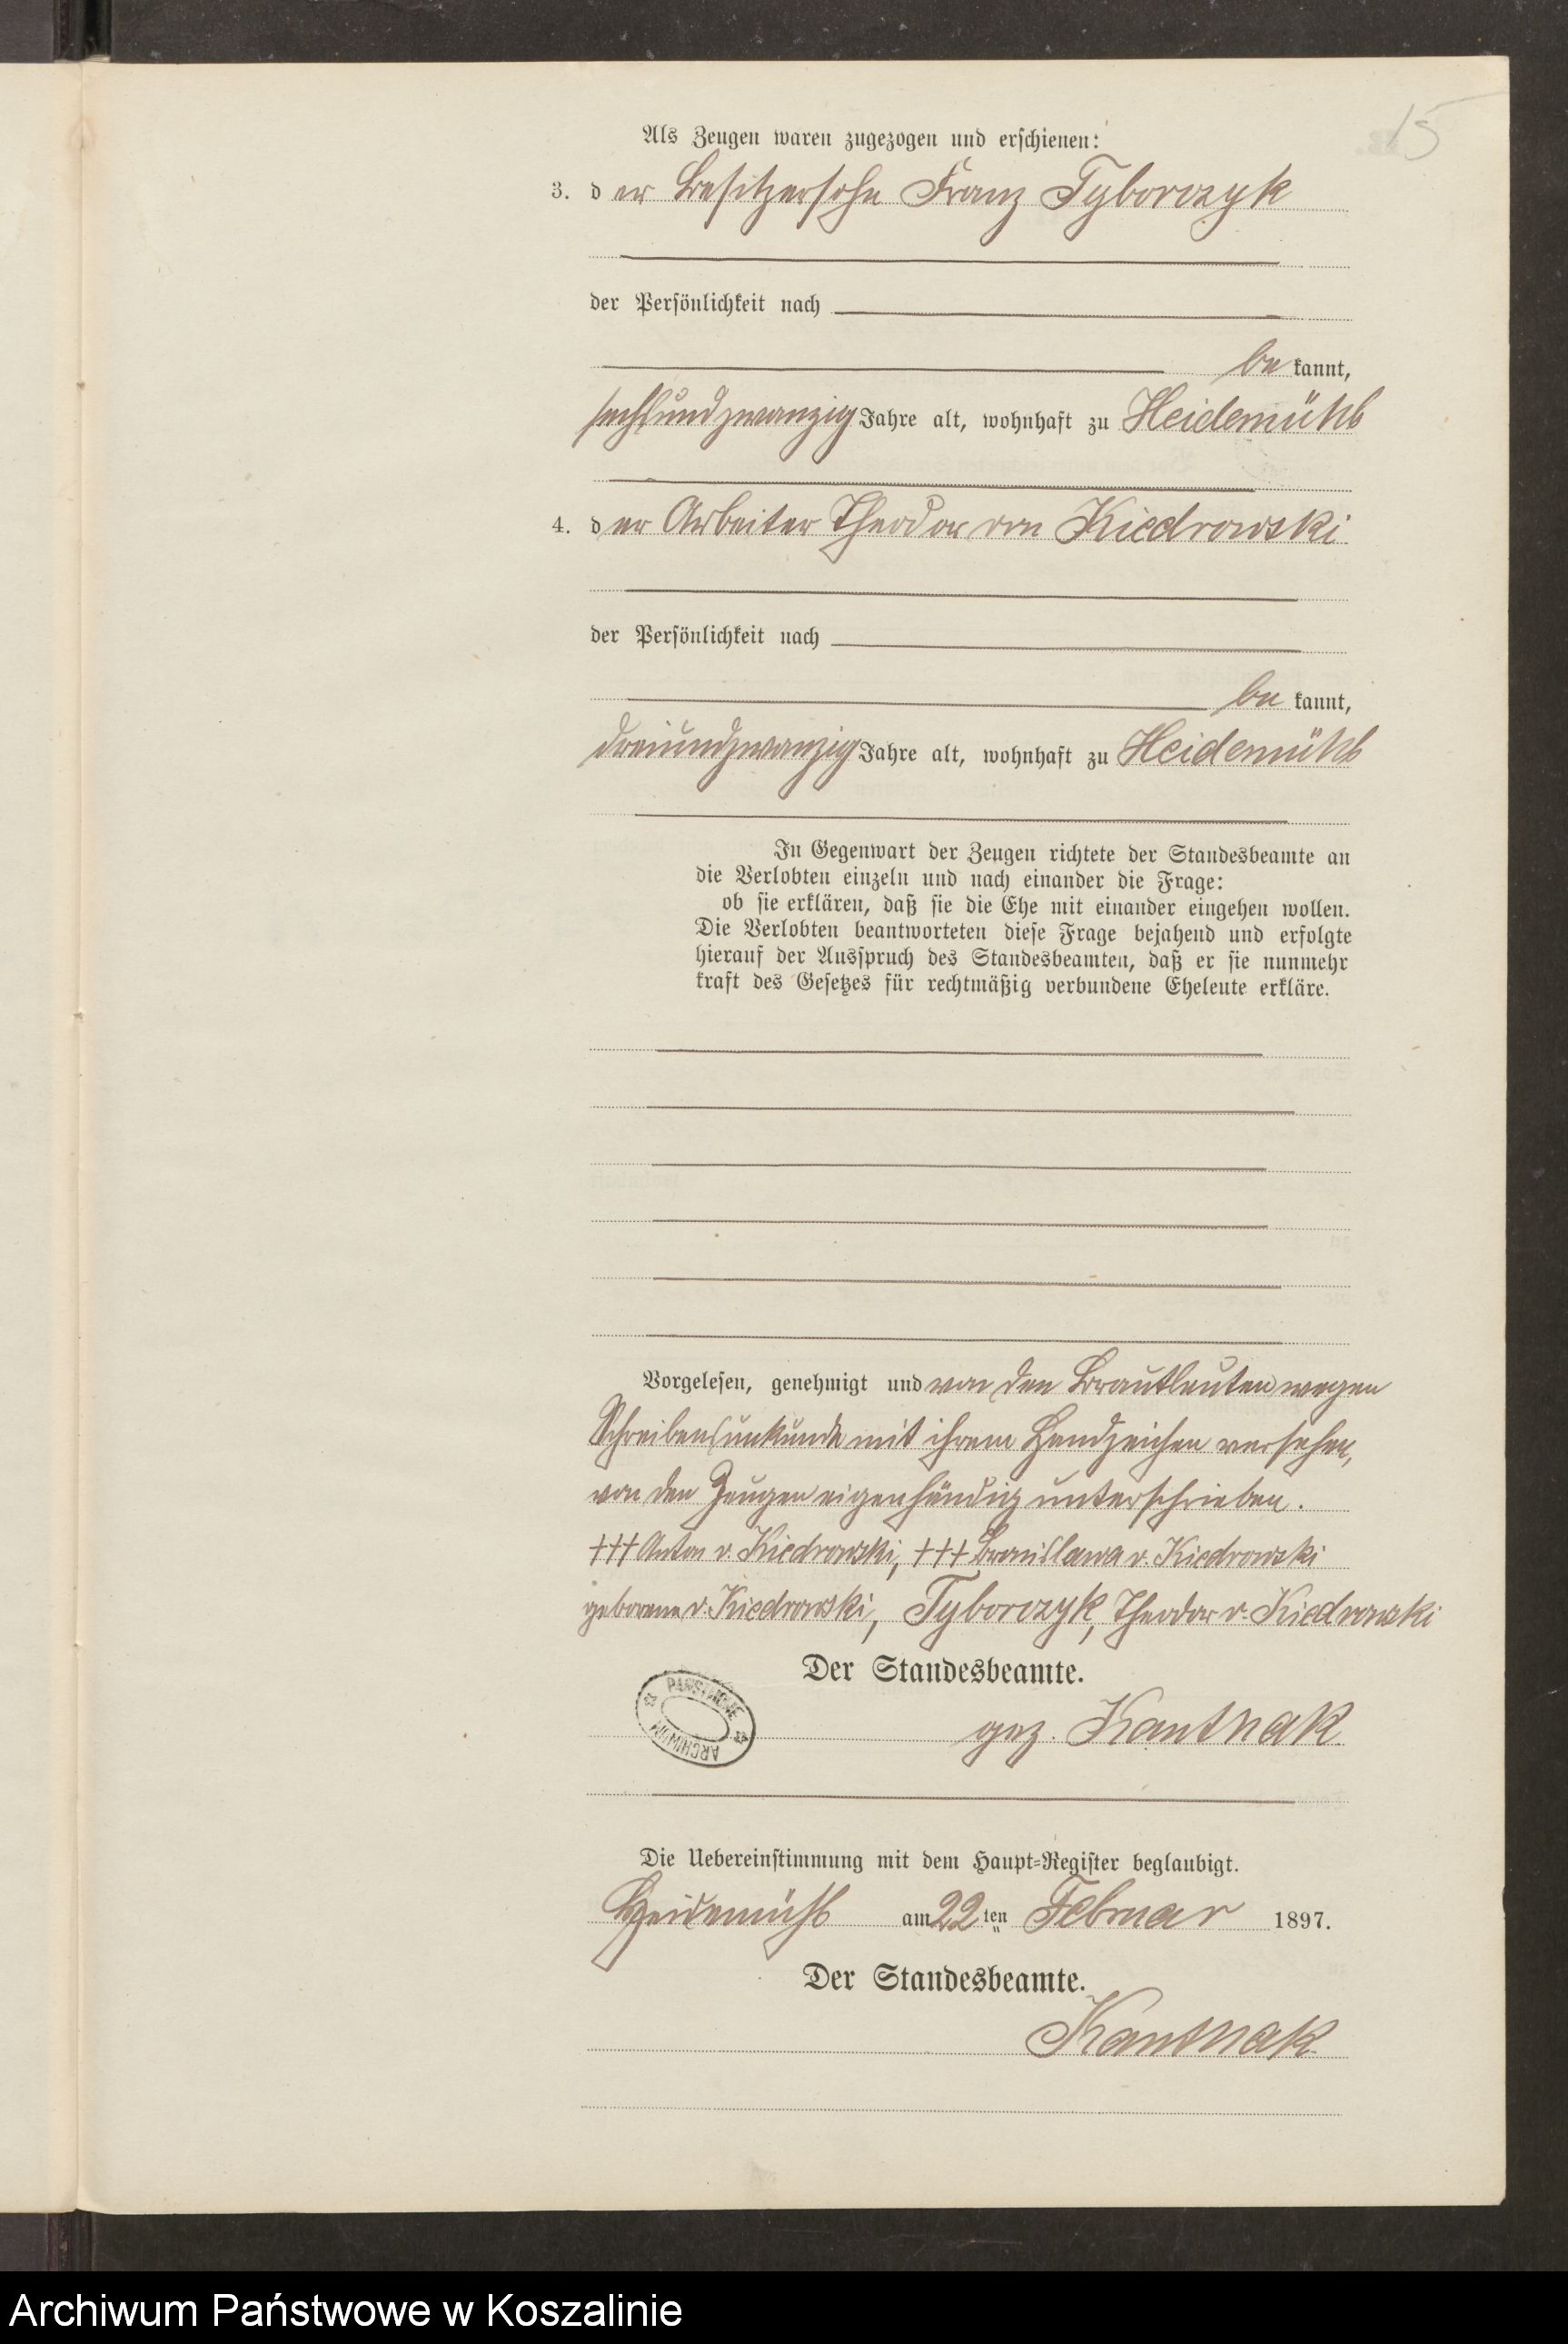 15
Als Zeugen waren zugezogen und erschienen:
3. der Besitzersohn Franz Tyborczyk
der Persönlichkeit nach
be kannt,
sechsundzwanzig Jahre alt, wohnhaft zu Heidemühl
4. der Arbeiter Theodor von Kiedrowski
der Persönlichkeit nach
be kannt,
dreiundzwanzig Jahre alt, wohnhaft zu Heidemühl
In Gegenwart der Zeugen richtete der Standesbeamte an
die Verlobten einzeln und nach einander die Frage:
ob sie erklären, daß sie die Ehe mit einander eingehen wollen.
Die Verlobten beantworteten diese Frage bejahend und erfolgte
hierauf der Ausspruch des Standesbeamten, daß er sie nunmehr
kraft des Gesetzes für rechtmäßig verbundene Eheleute erkläre.
Vorgelesen, genehmigt und von den Brautleuten wegen
Schreibensunkunde mit ihrem Handzeichen versehen,
von den Zeugen eigenhändig unterschrieben.
+++ Anton v. Kiedrowski, +++ Bronislawa v. Kiedrowski
geborene v. Kiedrowski, Tyborczyk, Theodor v. Kiedrowski
Der Standesbeamte.
ARCHIWUM PAŃSTWOWE
gez. Kanthak
Die Uebereinstimmung mit dem Haupt-Register beglaubigt.
Heidemühl am 22ten Februar 1897.
Der Standesbeamte.
Kanthak
Archiwum Państwowe w Koszalinie